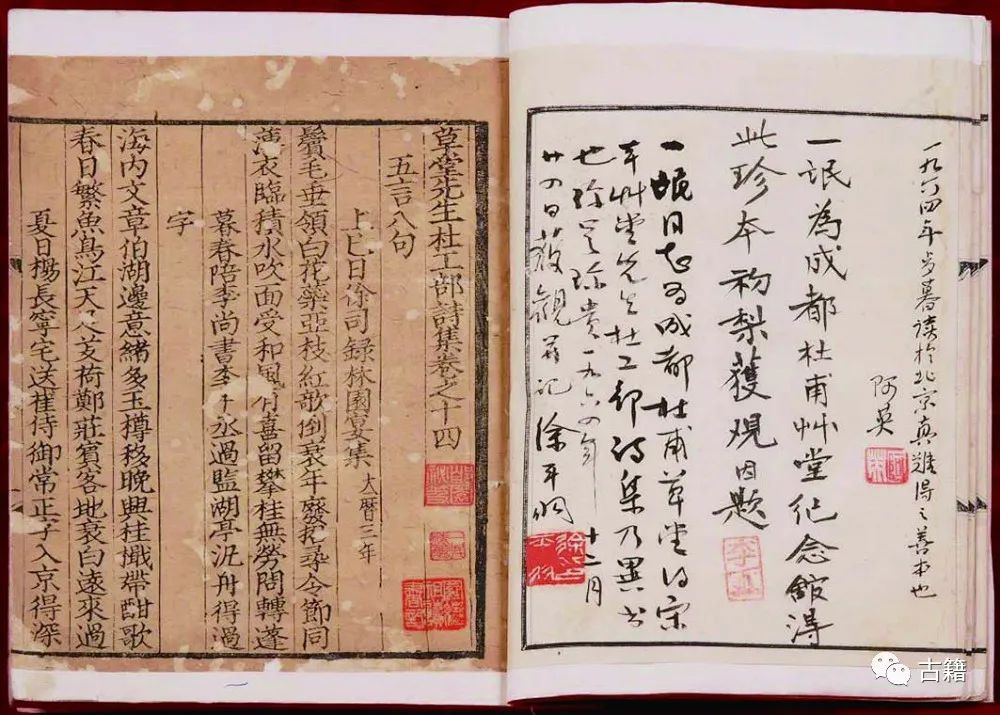 一九六四年岁暮读於北京真難得之善本也
阿英
阿英
一氓為成都杜甫艸堂纪念館淂
此珍本初梨獲观因题
一氓同志为成都杜甫草堂得宋
本艸堂先生杜工部诗集乃異书
也珍贵一九六四年十二月
廿四日获觀并记 徐平羽
草堂先生杜工部詩集卷之十四
五言八句
上巳日徐司録林園宴集 大曆三年
鬢毛垂領白花蘂亞枝紅歌倒衰年廢招尋令節同
薄衣臨積水吹面受和風有喜留攀桂無勞問轉蓬
暮春陪李尚書李中丞過監湖亭汎舟得過
字
海内文章伯湖邊意緒多玉樽移晚興桂檝帶酣歌
春日繁魚鳥江天足芰荷鄭莊賓客地衰白遠來過
夏日楊長寧宅送崔侍御常正字入京得深
古籍